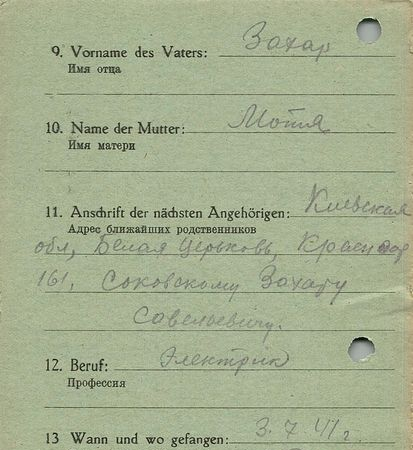 9. Vorname des Vaters: Захар
Имя отца
10. Name der Mutter: Мотля
Имя матери
11. Anschrift der nächsten Angehörigen: Киевская
Адрес ближайших родственников
обл, Белая Церьковь,
161, Соковскому Захару
Савельевичу.
12. Beruf: Электрик
Профессия
13 Wann und wo gefangen: 3. 7. 41 г.